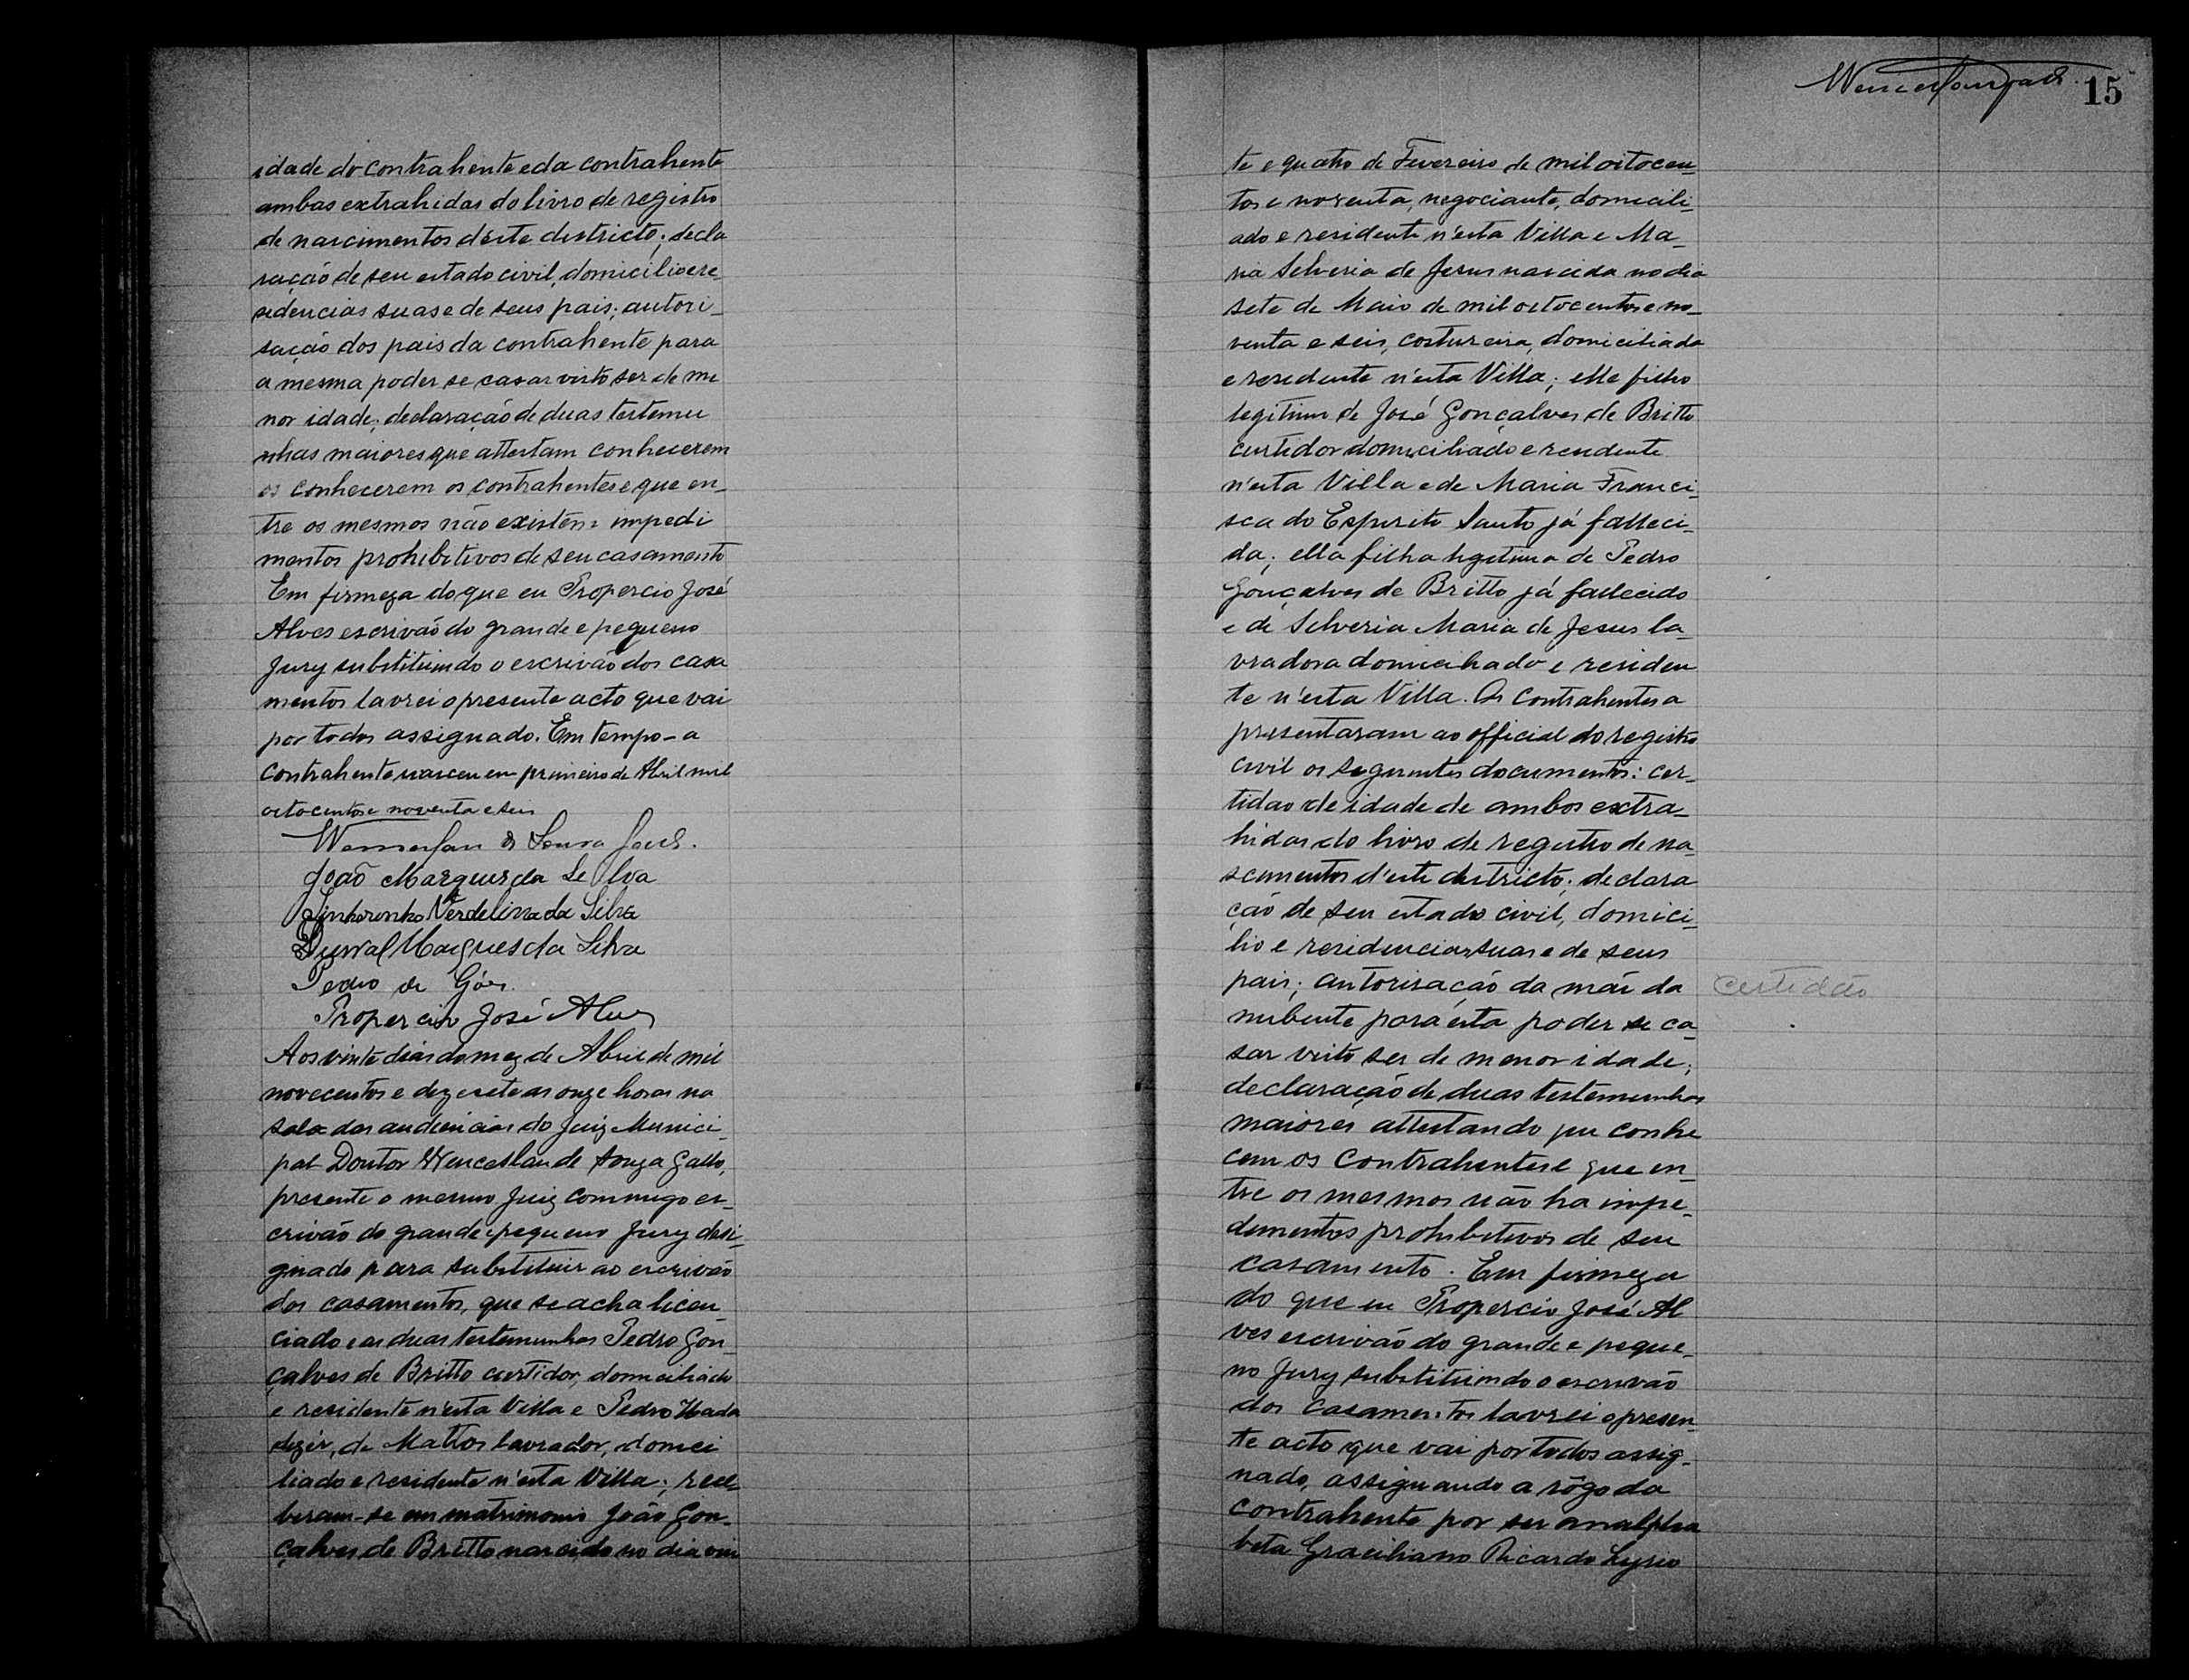 idade do contrahente e da contrahente
ambas extrahidas do livro de registro
de nascimentos d'este districto; decla
ração de seu estado civil, domicilio e re-
sidencias suas e de seus pais; autori-
sação dos pais da contrahente para
a mesma poder se casar visto ser de me
nor idade; declaração de duas testemu
nhas maiores que attestam conhecerem
os conhecerem os contrahentes e que en-
tre os mesmos não existem impedi
mentos prohibitivos de seu casamento
Em firmeza do que eu Propercio José
Alves escrivão do grande e pequeno
Jury substituindo o escrivão dos casa
mentos lavrei o presente acto que vai
por todos assignado. Em tempo - a
contrahente nasceu em primeiro de Abril mil
oitocentos e noventa e seis
de Souza
João Marques da Silva
Verdelina da Silva
Durval Marques da Silva
Pedro de Góes.
Propercio José Alves
Aos vinte dias do mez de Abril de mil
novecentos e dezesete as onze horas na
sala das audiencias do Juiz Munici-
pal Doutor Wenceslau de Souza Gallo,
presente o mesmo Juiz commigo es-
crivão do grande e pequeno Jury desi-
gnado para substituir ao escrivão
dos casamentos, que se acha licen-
ciado e as duas testemunhas Pedro Gon-
çalves de Britto curtidor, domiciliado
e residente n'esta Villa e Pedro
de Mattos lavrador, domici
liado e residente n'esta Villa; rece-
beram-se em matrimonio João Gon-
çalves de Britto nascido no dia vin
15
te e quatro de Fevereiro de mil oitocen-
tos e noventa, negociante, domicili-
ado e residente n'esta Villa e Ma-
ria Silveria de Jesus nascida no dia
sete de Maio de mil oitocentos e no-
venta e seis, costureira, domiciliada
e residente n'esta Villa; elle filho
legitimo de José Gonçalves de Britto
curtidor domiciliado e residente
n'esta Villa e de Maria Franci-
sca do Espirito Santo já falleci-
da; ella filha legitima de Pedro
Gonçalves de Britto já fallecido
e de Silveria Maria de Jesus la-
vradora domiciliado e residen
te n'esta Villa. Os contrahentes a
presentaram ao official do registro
civil os seguintes documentos: cer-
tidão de idade de ambos extra-
hidas do livro de registro de na-
scimentos d'este districto; declara
ção de seu estado civil, domici-
lio e residencias suas e de seus
pais; autorisação da mãi da
nubente para esta poder se ca-
sar visto ser de menor idade;
declaração de duas testemunhas
maiores attestando que conhe
cem os contrahentes e que en-
tre os mesmos não ha impe-
dimentos prohibitivos de seu
casamento. Em firmeza
do que eu Propercio José Al
ves escrivão do grande e peque-
no Jury substituindo o escrivão
dos casamentos lavrei o presen-
te acto que vai por todos assig-
nado, assignando a rôgo da
contrahente por ser analpha
beta Graciliano Ricardo Lyrio
certidão